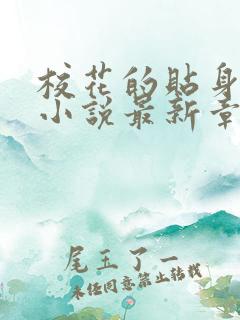 校花的贴身
小说最新章
尾玉了一
未经同意禁止转载